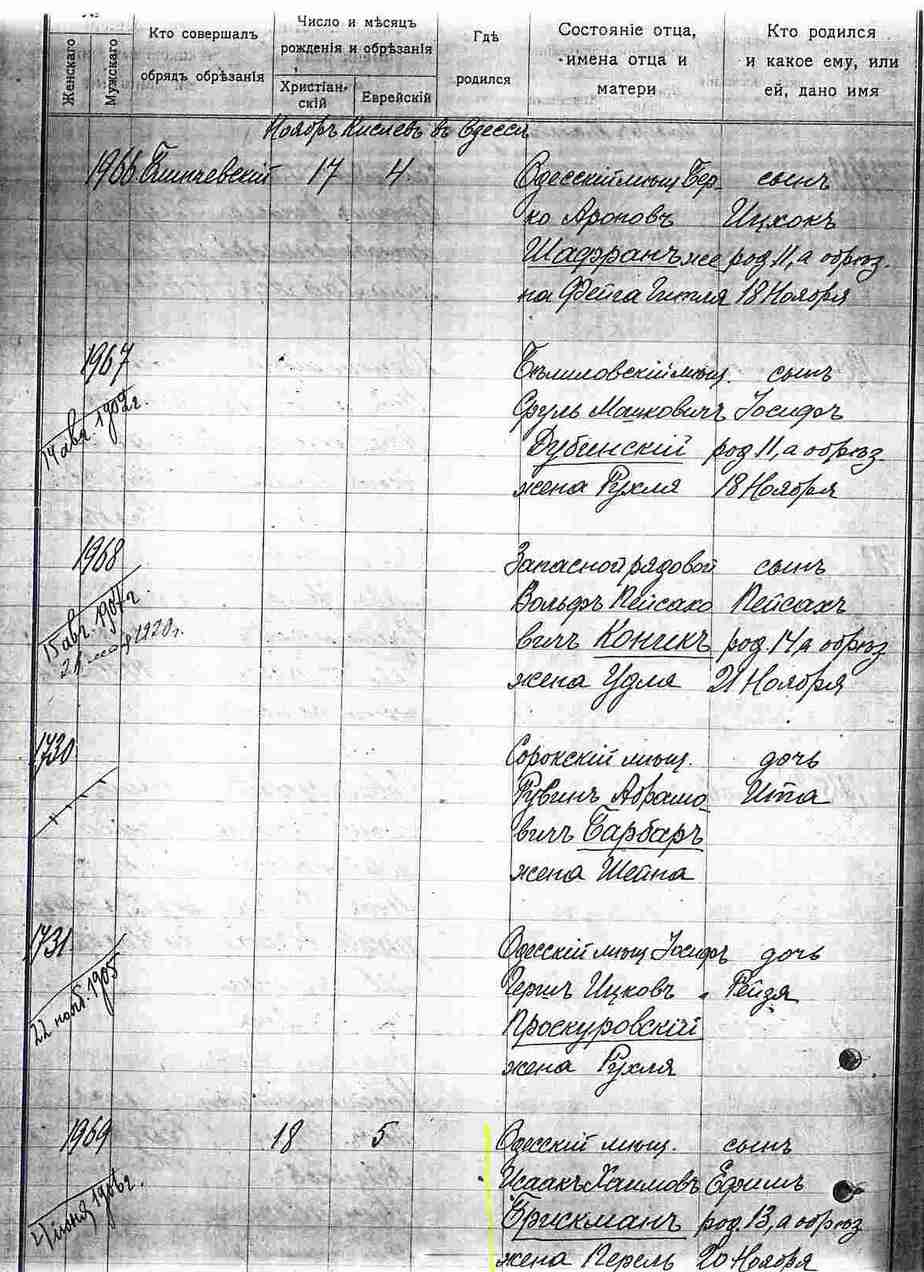 №
Женскаго
Мужскаго
Кто совершалъ
обрядъ обрѣзанія
Число и мѣсяцъ
рожденія и обрѣзанія
Христіан-
скій
Еврейскій
Гдѣ
родился
Состояніе отца,
имена отца и
матери
Кто родился
и какое ему, или
ей, дано имя
Ноябрь Кислевъ въ Одессѣ
1966
17
4
Одесскій мѣщ Бер-
ко Ароновъ
Шафранъ же
на Фейга Гитля
сынъ
Ицхокъ
род 11, а обрѣз.
18 Ноября
1967
14 авг. 1902г.
мѣщ.
Сруль
Дубинскій
жена Рухля
сынъ
Іосифъ
род 11, а обрѣз
18 Ноября
1968
15 авг. 1907г.
1920г.
Запасной рядовой
Вольфъ Пейсахо
вичъ Коникъ
жена Удля
сынъ
Пейсахъ
род. 14 а обрѣз
21 Ноября
1730
Сорокскій мѣщ.
Рувинъ Абрамо
вичъ Барбаръ
жена Шейна
дочь
Ита
1731
22 нояб. 1905
Одесскій мѣщ Іосифъ
Гершъ Ицковъ
Проскуровскій
жена Рухля
дочь
Рейзя
1969
іюня 1906г.
18
5
Одесскій мѣщ.
Исаакъ Хаимовъ
Брискманъ
жена Перель
сынъ
Ефимъ
род. 13, а обрѣз
20 Ноября